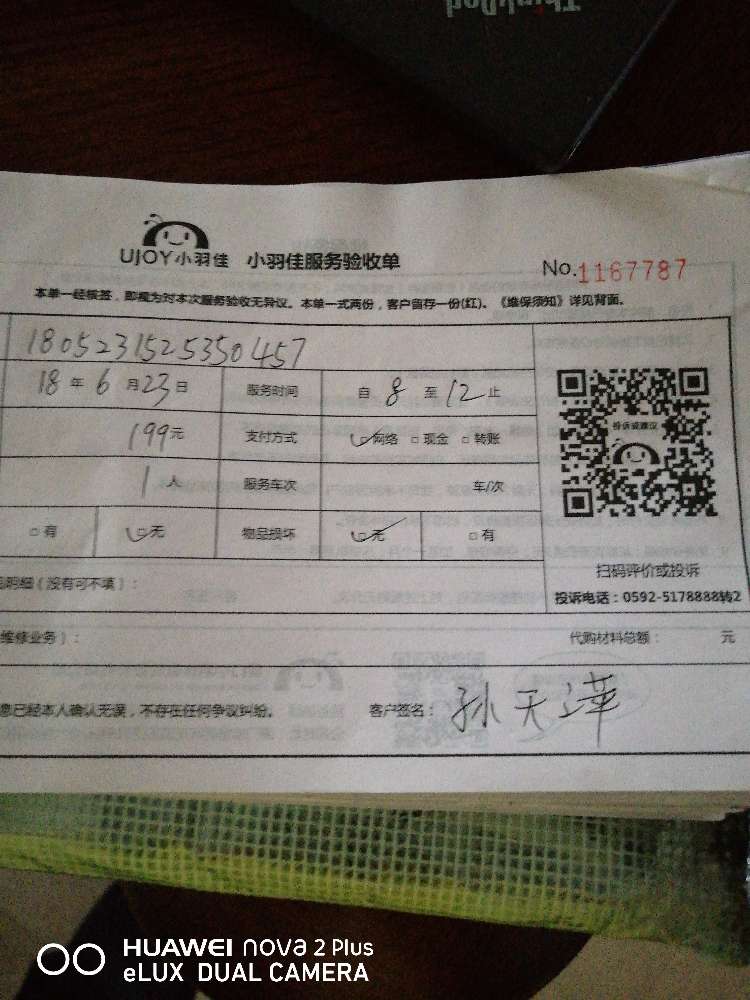 ThinkPad
UJOY小羽佳 小羽佳服务验收单 No.1167787
本单一经核签，即视为对本次服务验收无异议。本单一式两份，客户留存一份(红)。《维保须知》详见背面。
1805231525350457
18年6月23日 服务时间 自8至12止
199元 支付方式 □网络 □现金 □转账
1人 服务车次 车/次
□有 □无 物品损坏 □无 □有
投诉或建议
扫码评价或投诉
明细（没有可不填）：
投诉电话：0592-5178888转2
维修业务）： 代购材料总额： 元
息已经本人确认无误，不存在任何争议纠纷。 客户签名：孙天萍
HUAWEI nova 2 Plus
eLUX DUAL CAMERA